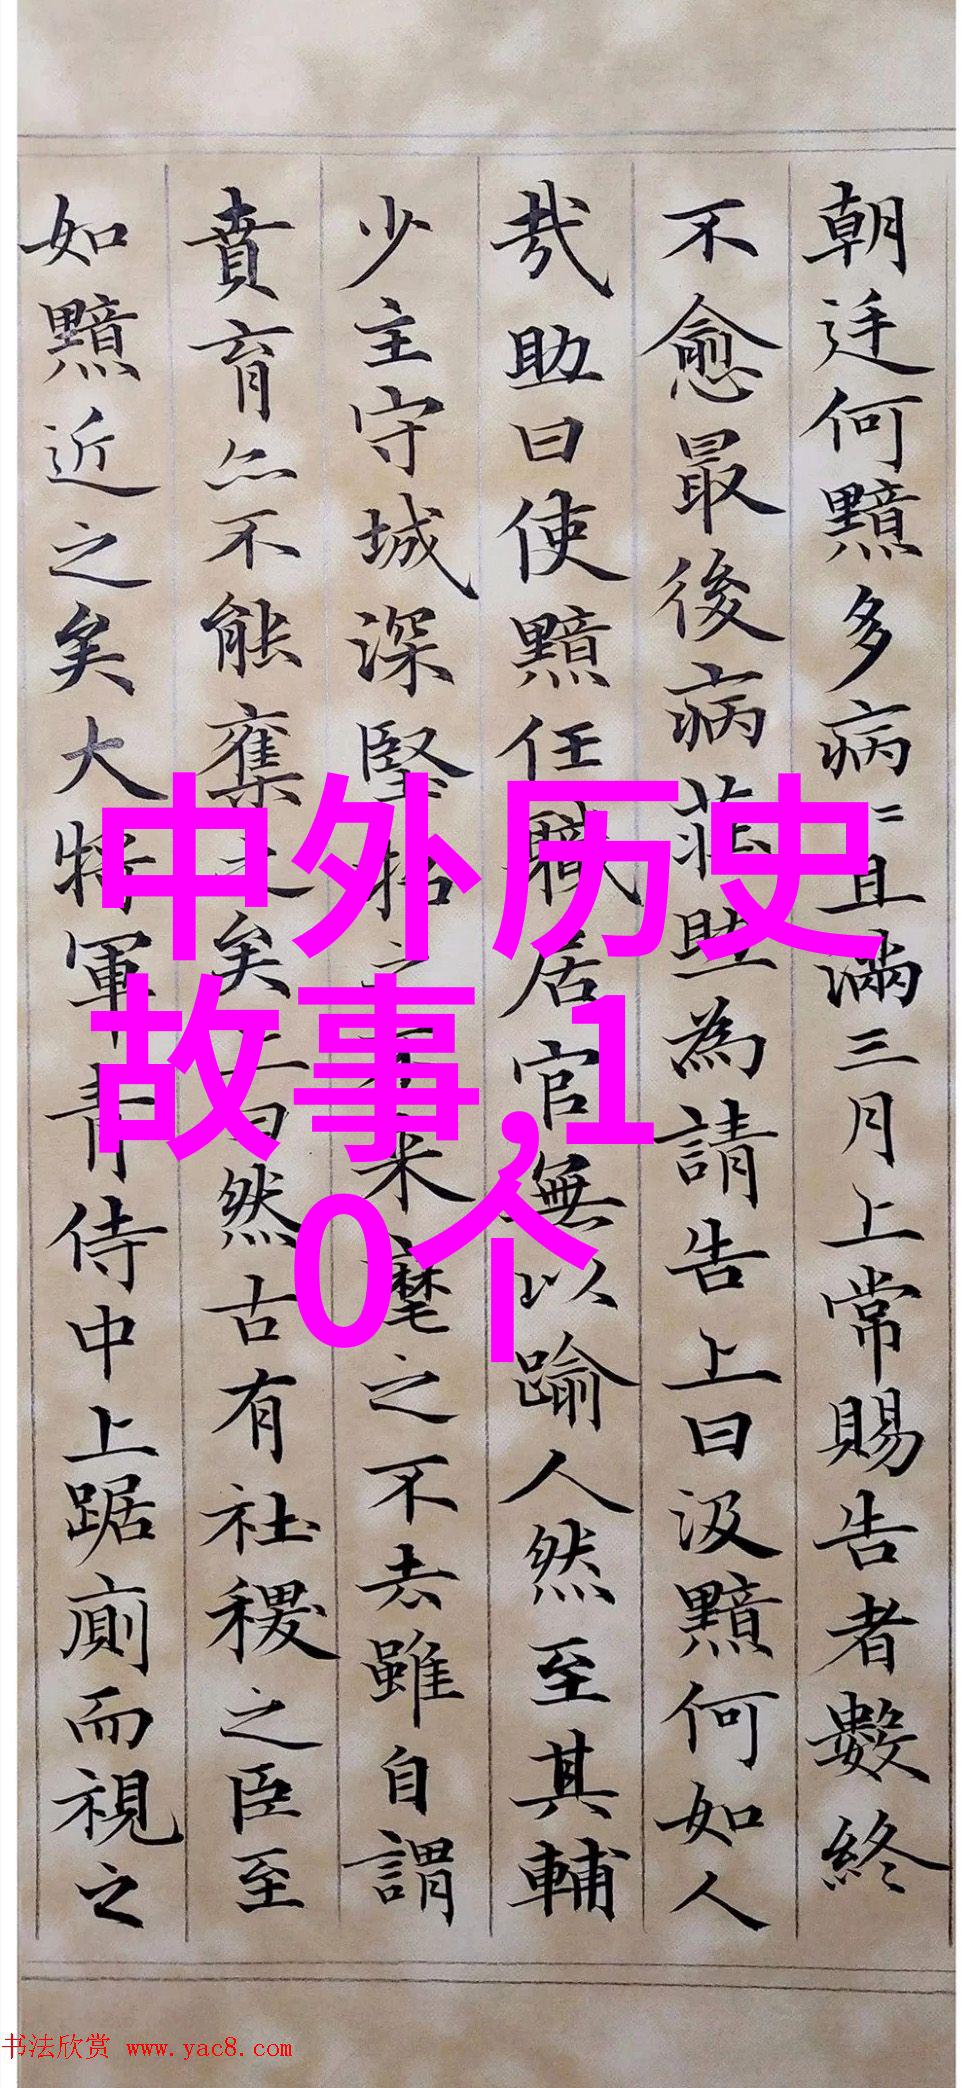 朝廷何黯多病病且滿三月上常賜告者數終
不愈最後病莊助為請告上曰汲黯何如人
哉助曰使黯任職居官無以踰人然至其輔
少主守城深堅招之不来麾之不去雖自謂
賁育亦不能奪之矣上曰然古有社稷之臣至
如黯近之矣大將軍青侍中上踞廁而視之
中外历史
故事,1
0个
书法欣赏 www.yac8.com